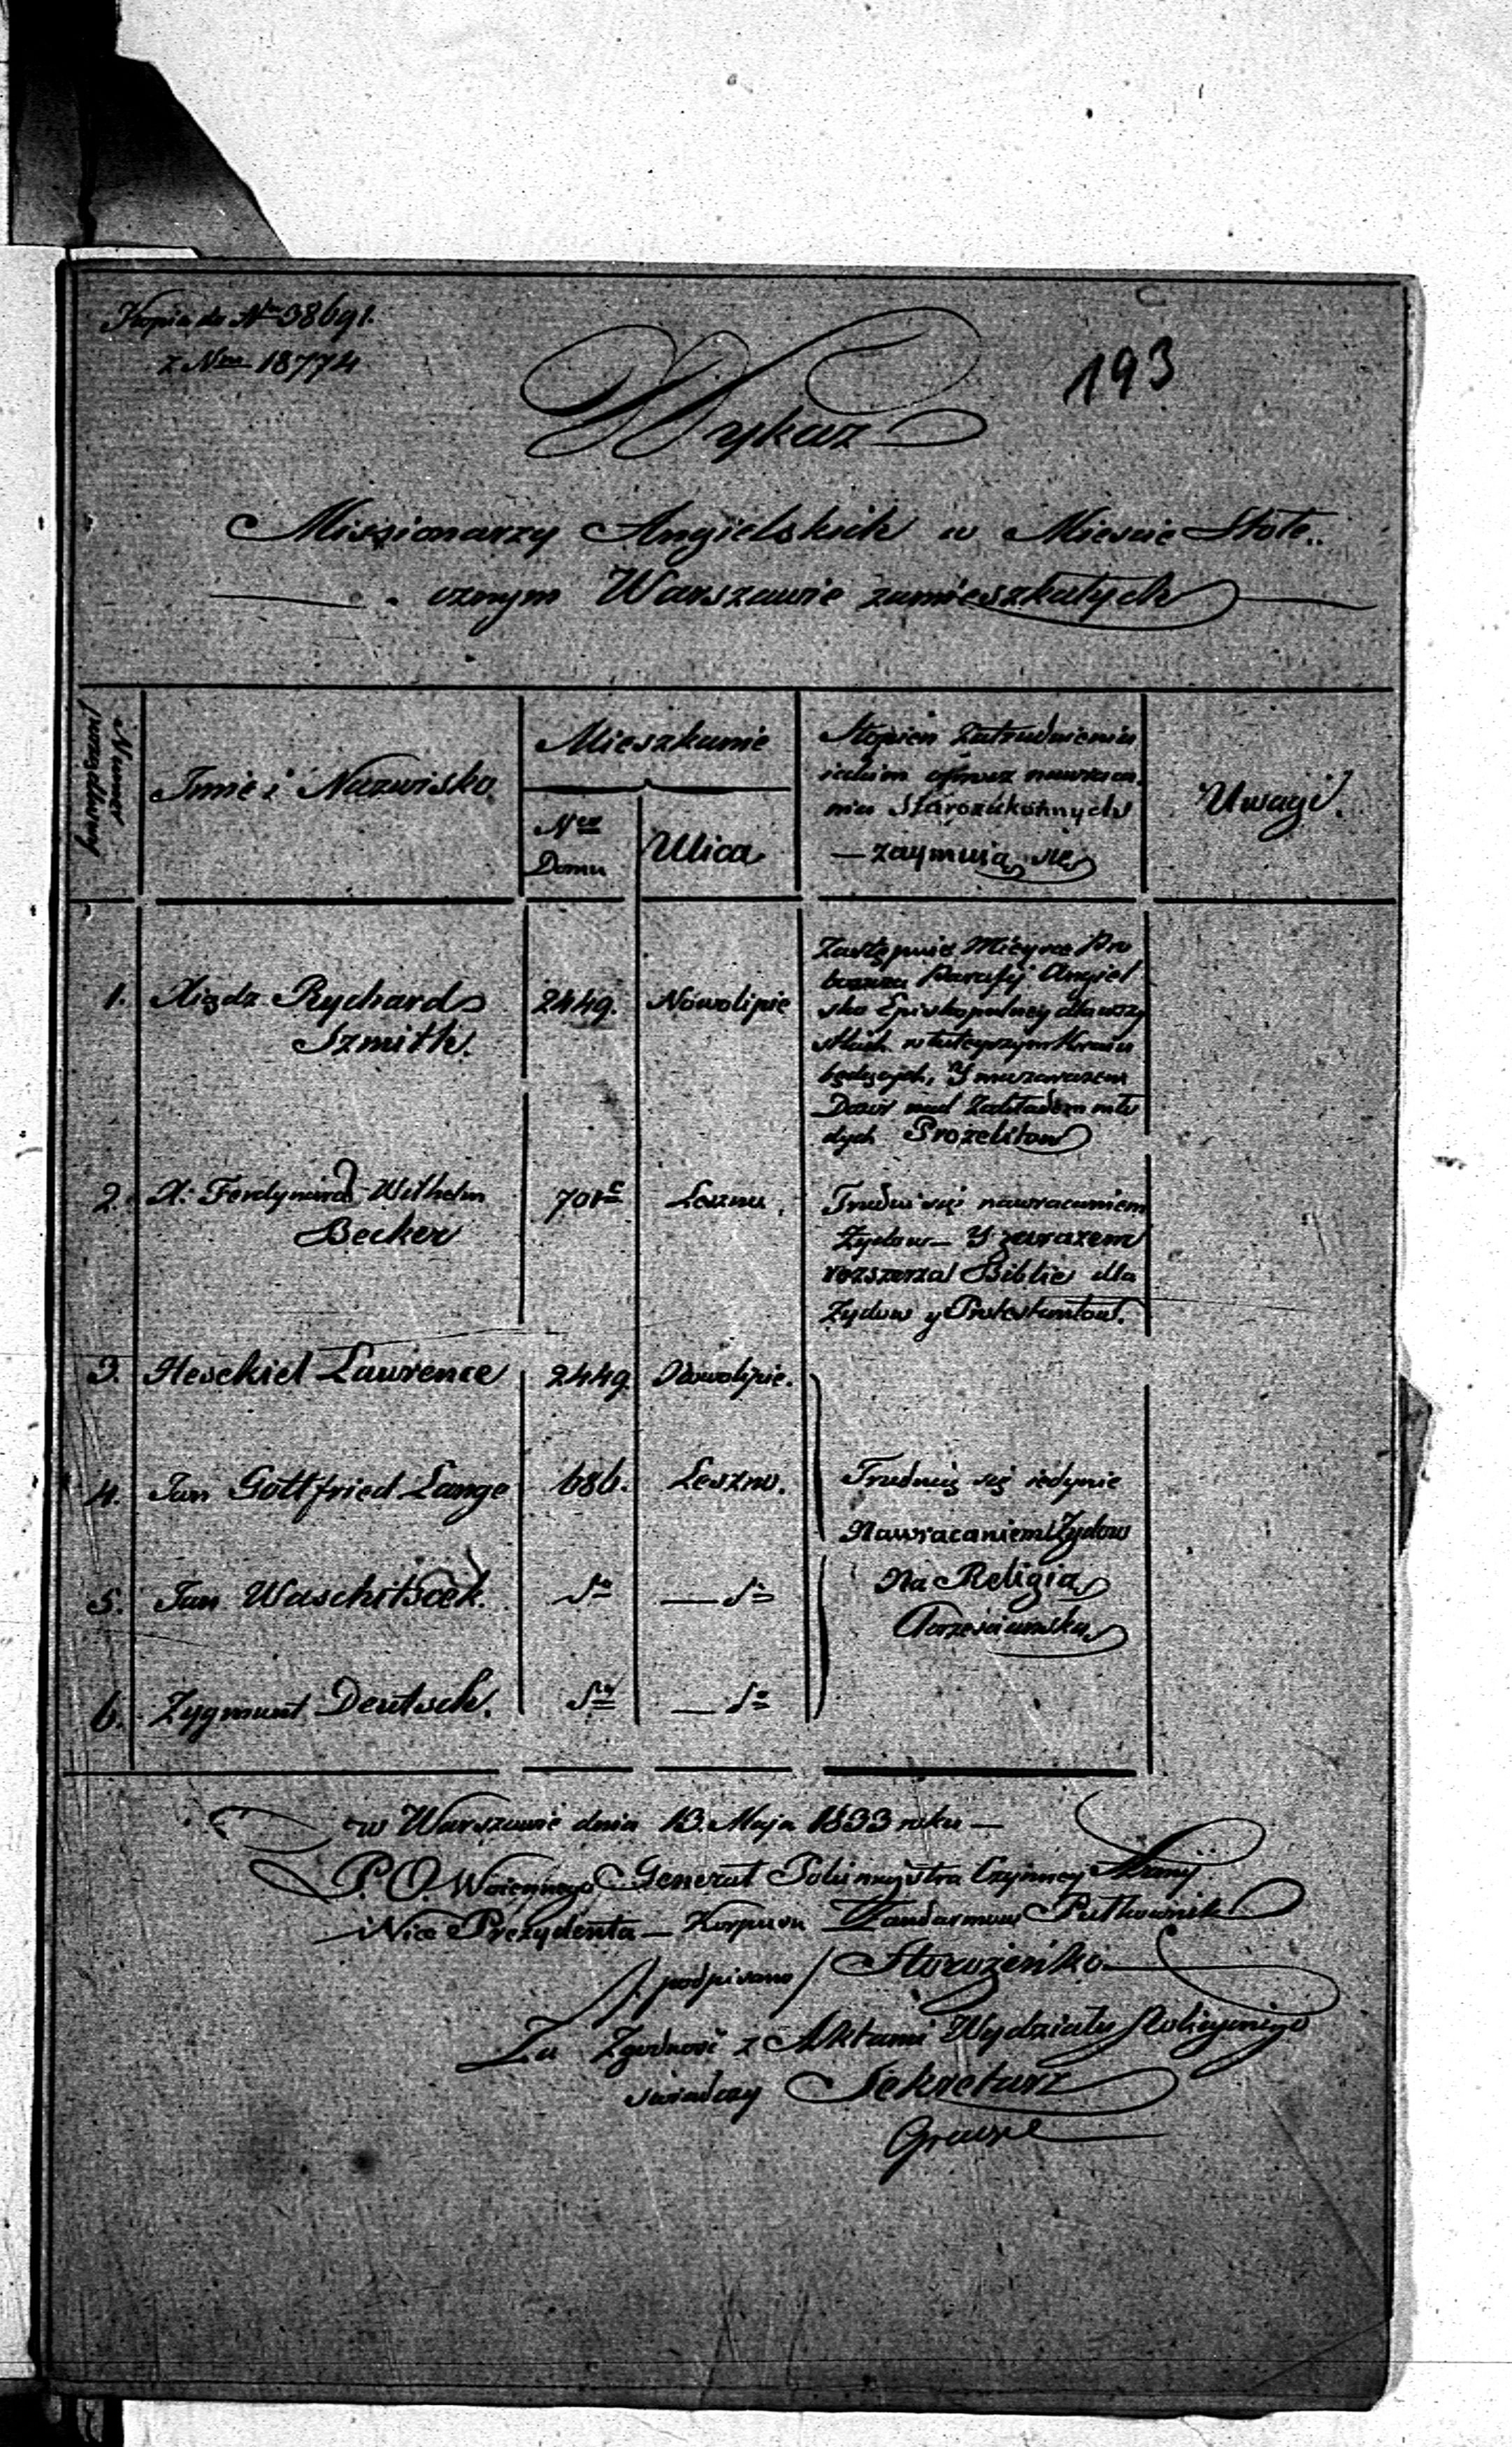 Kopia do Nru 38691.
z Nru 18774
193
Wykaz
Missionarzy Angielskich w Miescie Stołe..
cznym Warszawie zamieszkałych
Numer porządkowy
Imie i Nazwisko
Mieszkanie
Ner Domu
Ulica
Stopien Zatrudnienia
iakim oprocz nawraca-
nia Starozakonnych
— zaymuią się
Uwagi.
1. Xiądz Rychard
Szmith.
2449.
Nowolipie
Zastępuie Mieysce Pro
boszcza Parafij Angiel
sko Episkopalney dla wszy
stkich w tuteyszym Kraiu
będących, Y ma zarazem
Dozór nad Zakładem mło
dych Prozelitow
2. X: Ferdynand Wilhelm
Becker
701c
Leszno,
Trudni się nawracaniem
Żydow — Y zarazem
rozszerza Biblie dla
Żydow y Protestantow.
3. Heschiel Lawrence
2449.
Nowolipie.
4. Jan Gottfried Lange
686.
Leszno.
Trudnią się iedynie
Nawracaniem Żydow
Na Religią
Chrzesciańską
5. Jan Waschitscek.
do
— do
6. Zygmunt Deutsch.
do
— do
w Warszawie dnia 13. Maja 1833 roku —
P. O. Woiennego General Policmajstra Czynney Armij
i Vice Prezydenta — Korpusu Żandarmow Pułkownik
/: podpisano / Storożeńko
Za Zgodność z Aktami Wydziału Policyinego
swiadczy Sekretarz